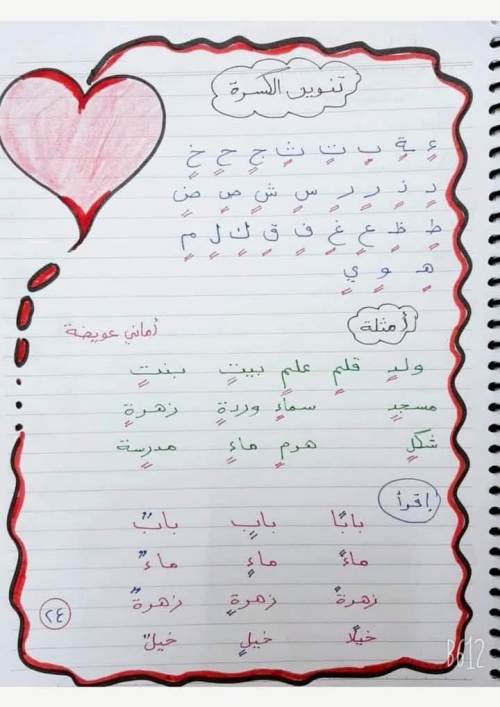 تنوين الكسرة
ءٍ ةٍ بٍ تٍ ثٍ جٍ حٍ خٍ
دٍ ذٍ رٍ زٍ سٍ شٍ صٍ ضٍ
طٍ ظٍ عٍ غٍ فٍ قٍ كٍ لٍ مٍ
هـٍ وٍ يٍ
أمثلة
أماني عويضة
ولدٍ قلمٍ علمٍ بيتٍ بنتٍ
مسجدٍ سماءٍ وردةٍ زهرةٍ
شكلٍ هرمٍ ماءٍ مدرسةٍ
اقرأ
بابًا بابٍ بابٌ
ماءً ماءٍ ماءٌ
زهرةً زهرةٍ زهرةٌ
خيلًا خيلٍ خيلٌ
٢٤
B612